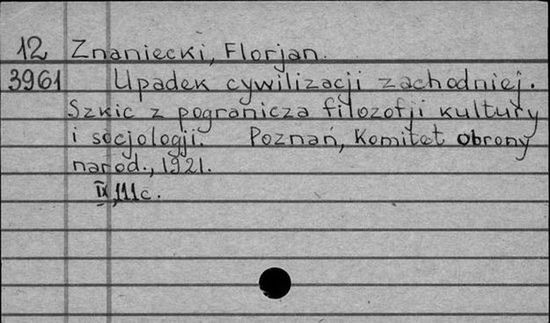 12 Znaniecki, Florjan.
3961 Upadek cywilizacji zachodniej.
Szkic z pogranicza filozofji kultury
i socjologji. Poznań, Komitet obrony
narod., 1921.
IX, 111 c.